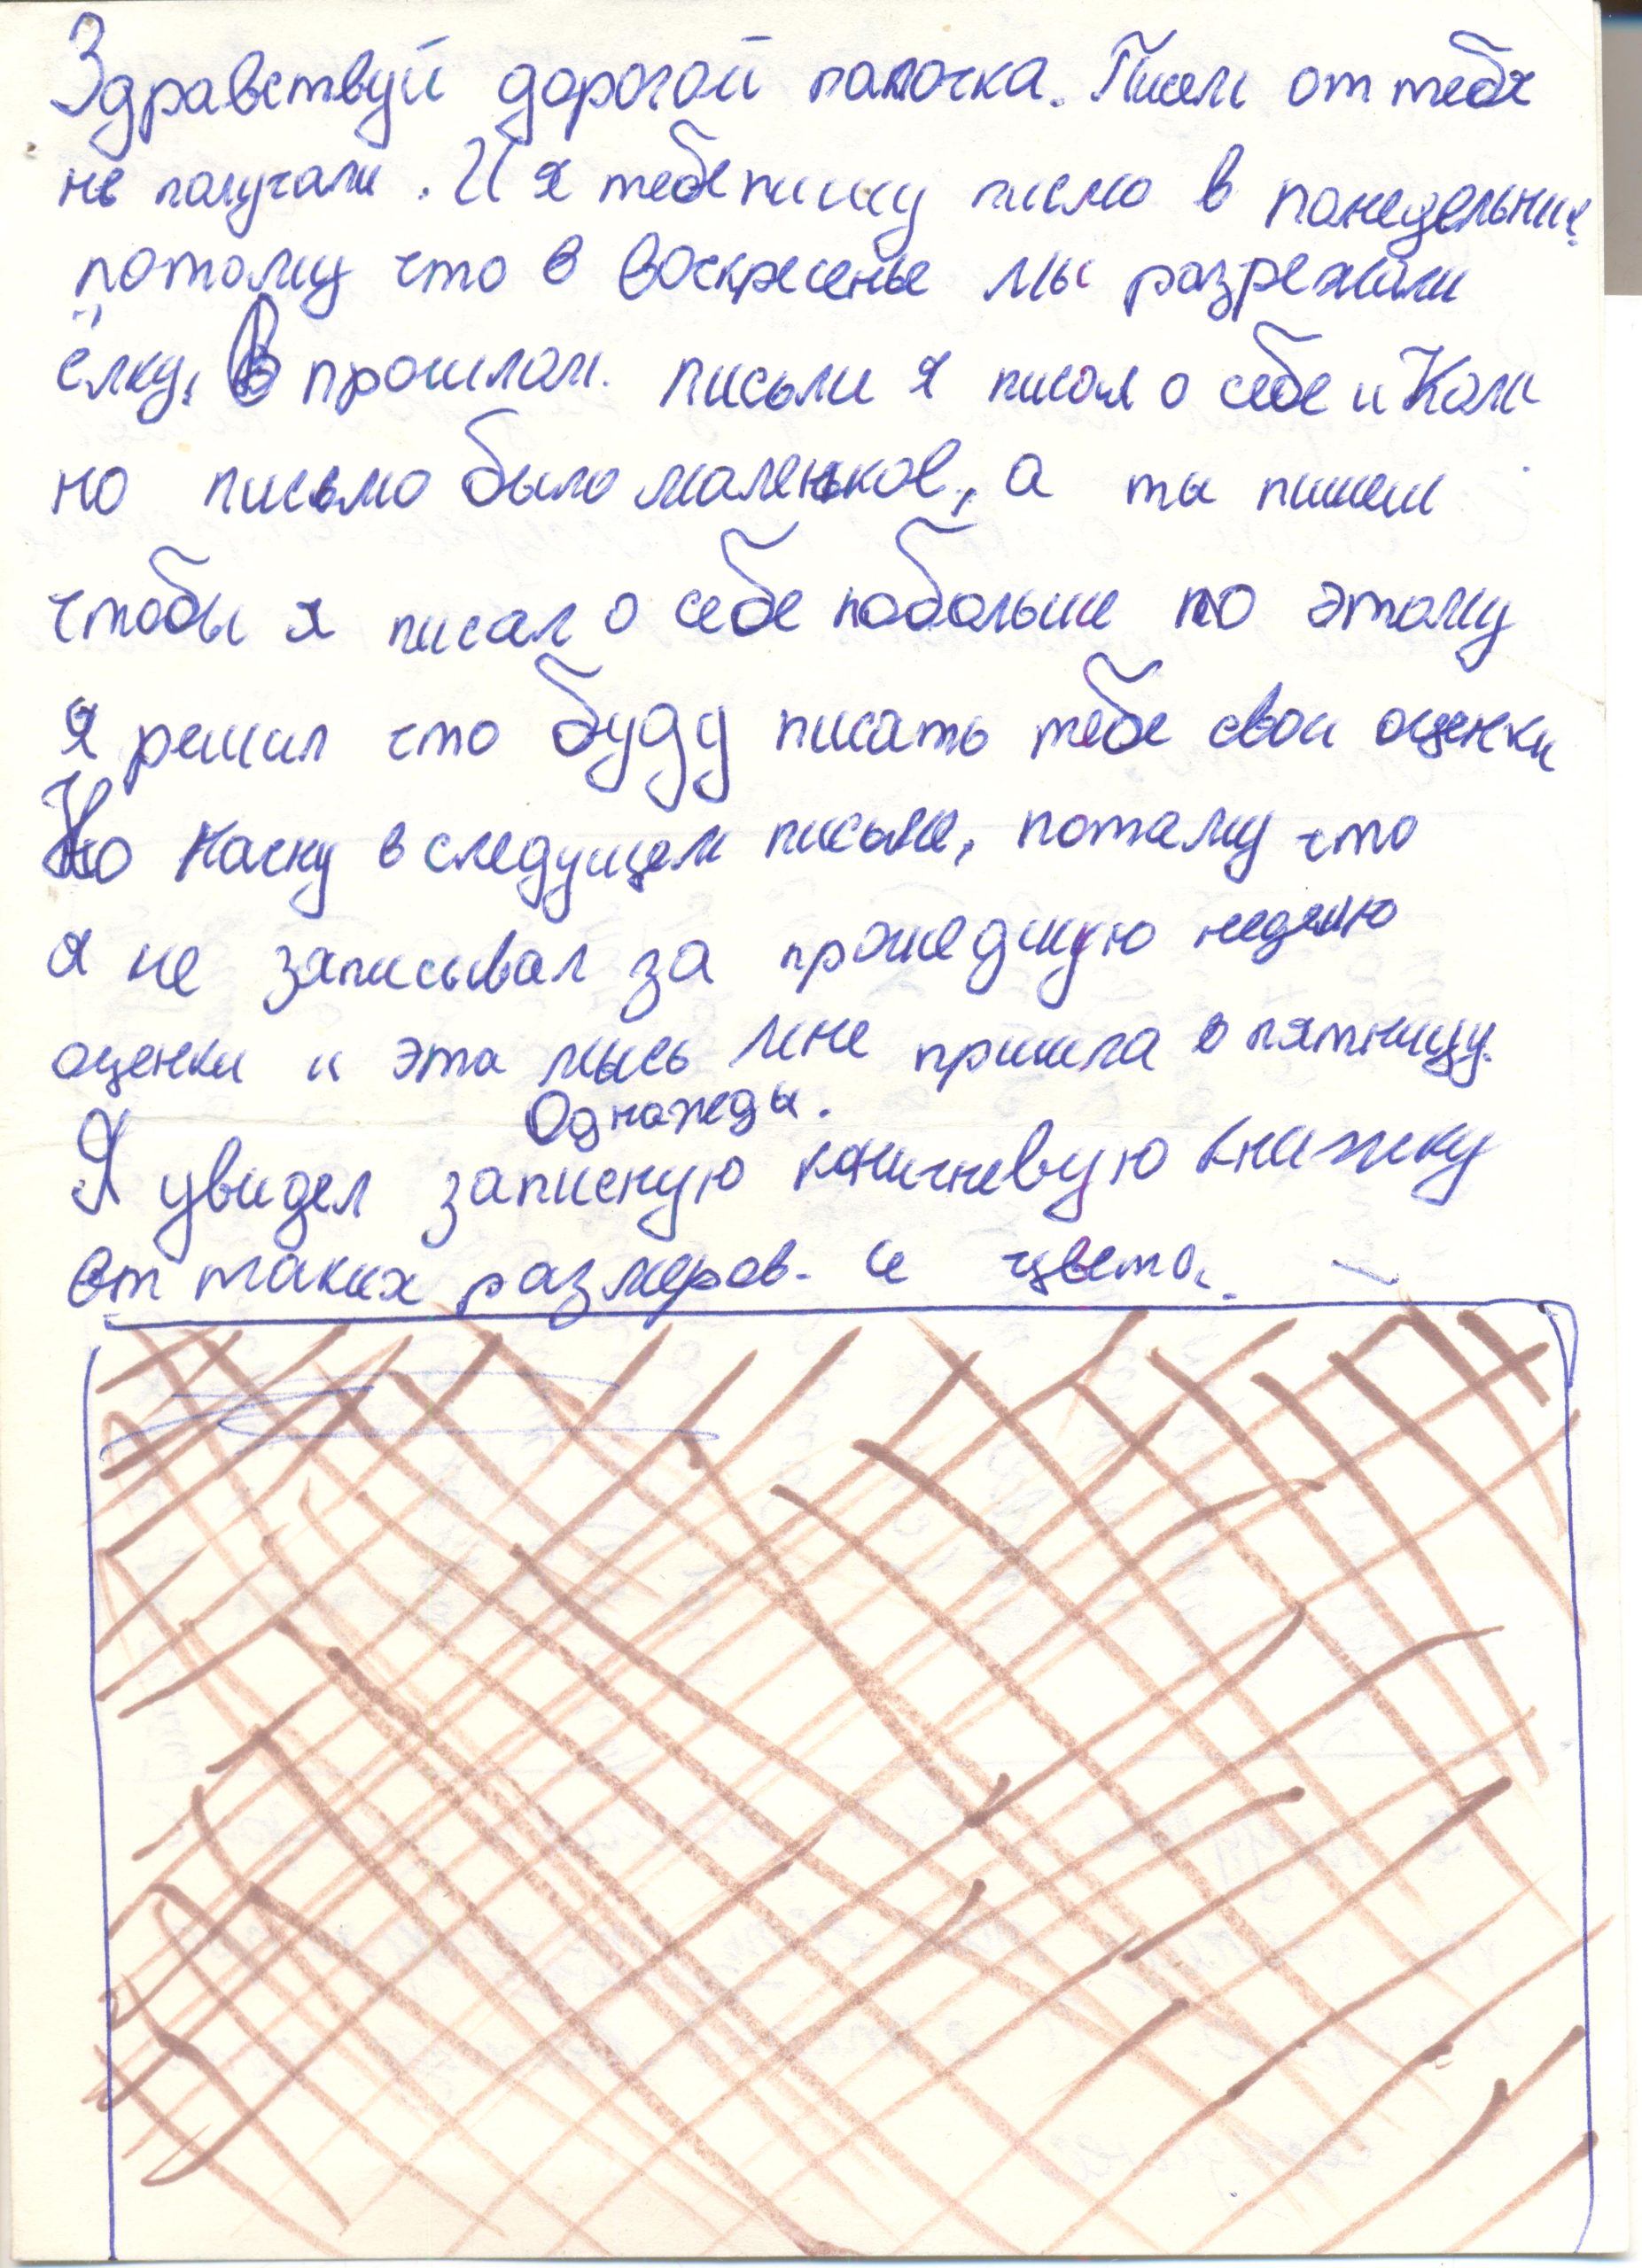 Здравствуй дорогой папочка. Писем от тебя
не получали. И я тебе пишу писмо в понедельник
потому что в воскресенье мы разрежали
ёлку. В прошлом. письми я писал о себе и Коли
но письмо было маленькое, а ты пишеш
чтобы я писал о себе побольше по этому
я решил что буду писать тебе свои оценки
Но начну в следущем письме, потому что
я не записывал за прошедшую неделю
оценки и эта мысь мне пришла в пятницу.
Однажды.
Я увидел записную коричневую книжку
вот таких размеров. и цвета.